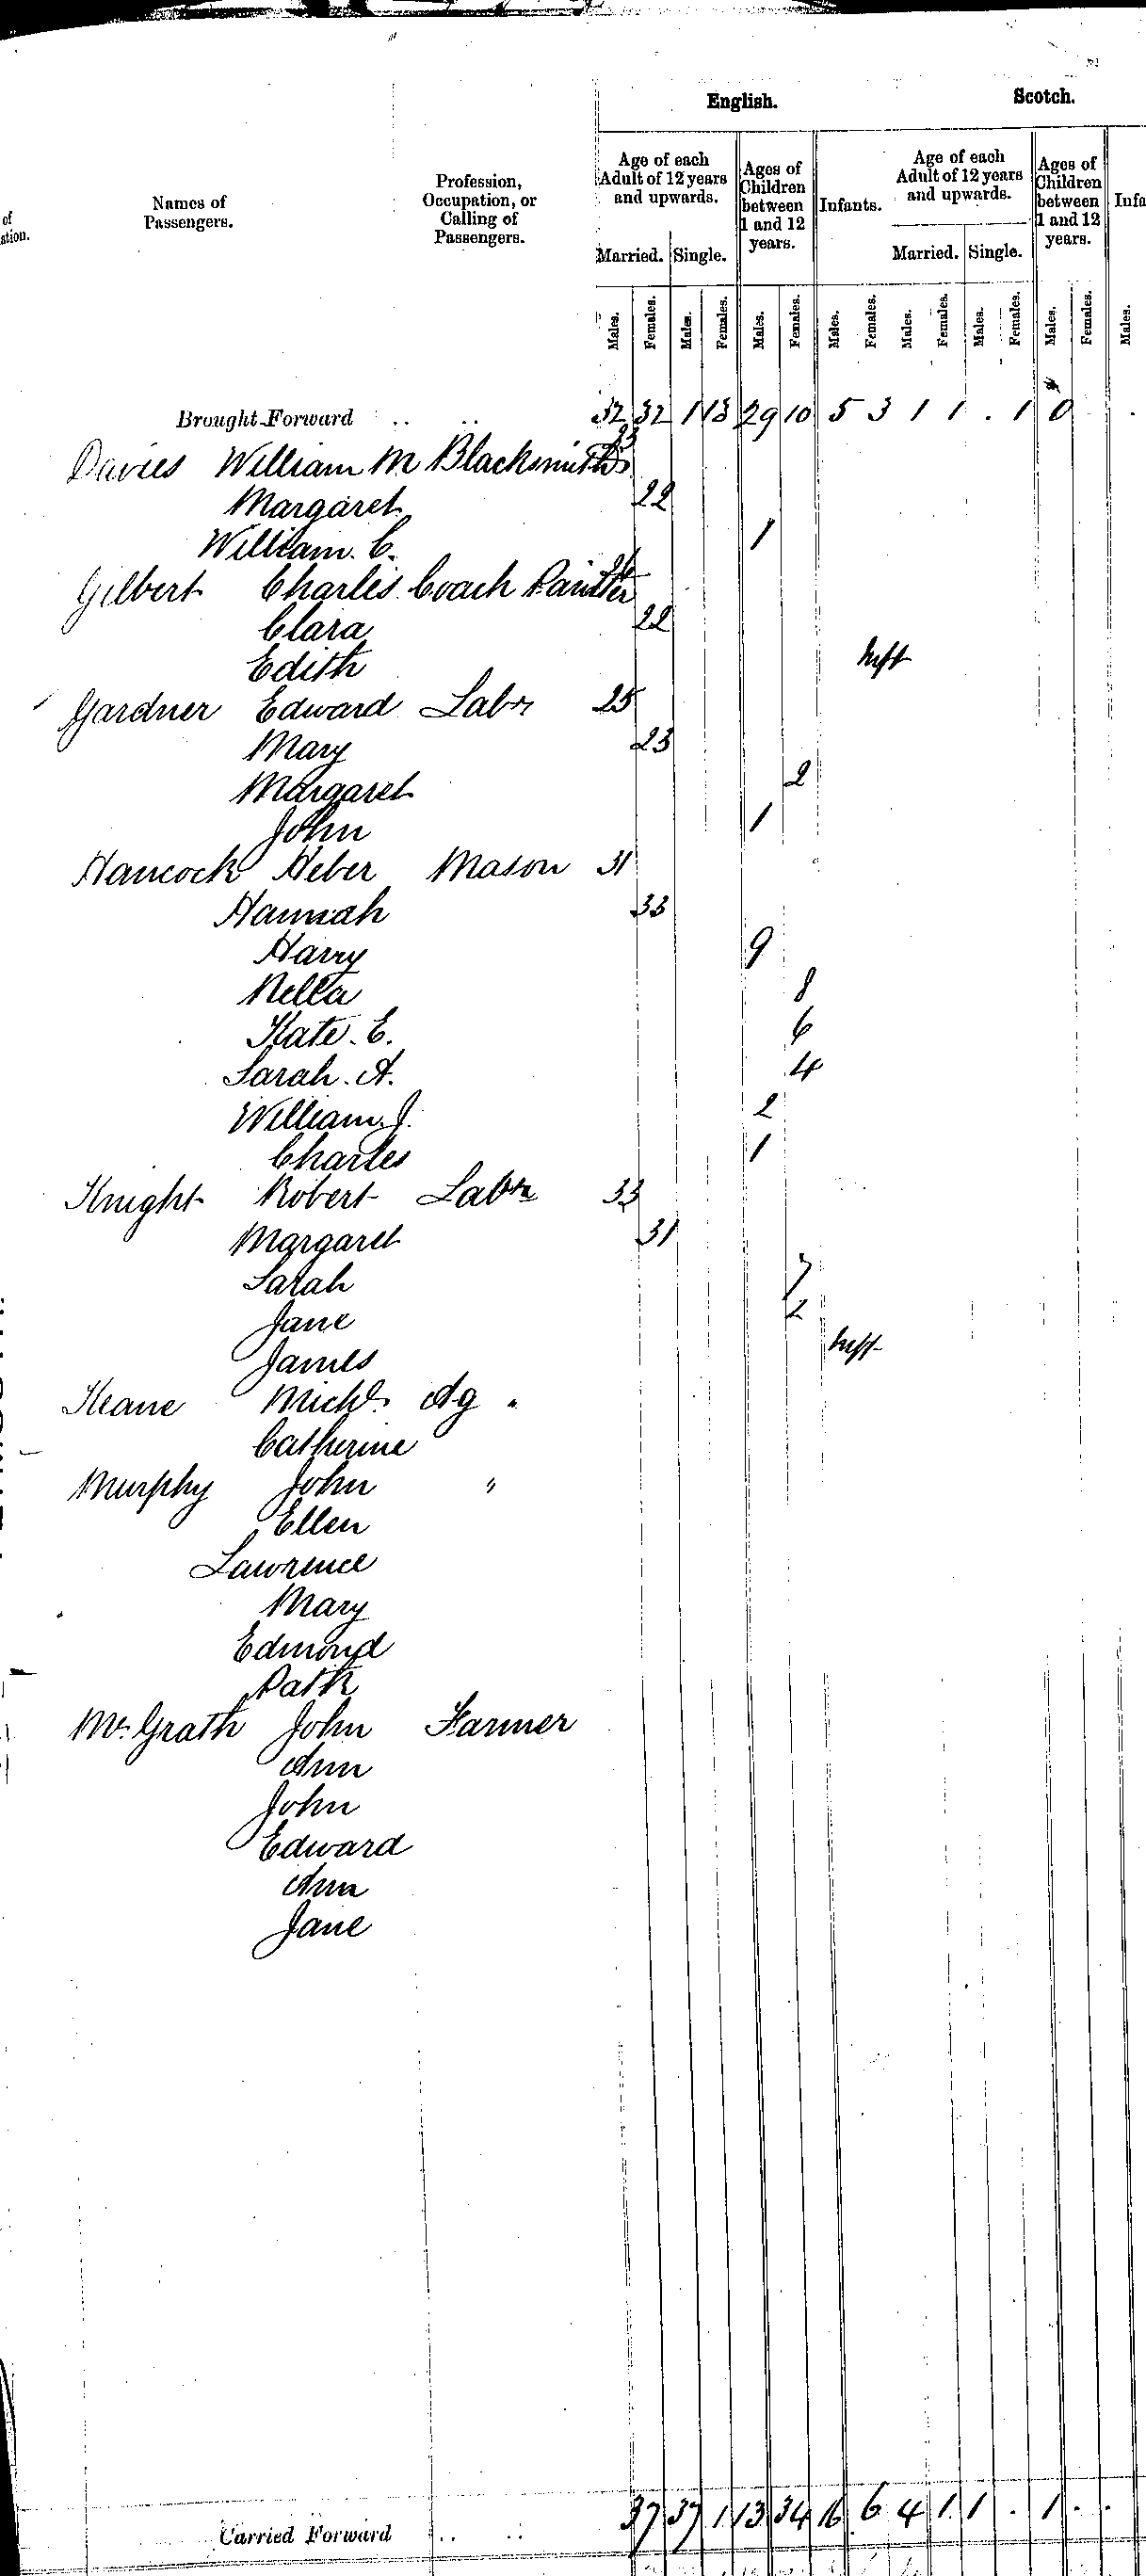 English. Scotch.
of
ation.
Names of
Passengers.
Profession,
Occupation, or
Calling of
Passengers.
Age of each
Adult of 12 years
and upwards.
Ages of
Children
between
1 and 12
years.
Infants.
Age of each
Adult of 12 years
and upwards.
Ages of
Children
between
1 and 12
years.
Infa
Married. Single. Married. Single.
Males. Females. Males. Females. Males. Females. Males. Females. Males. Females. Males. Females. Males. Females. Males.
Brought Forward .. .. 32 32 1 13 29 10 5 3 1 1 . 1 0 .
Davies William M Blacksmith 23
Margaret 22
William. C. 1
Gilbert Charles Coach Painter
Clara 22
Edith Inft
Gardner Edward Labr 25
Mary 23
Margaret 2
John 1
Hancock Heber Mason 31
Hannah 33
Harry 9
Nella 8
Kate. E. 6
Sarah. A. 4
William. J. 2
Charles 1
Knight Robert Labr 33
Margaret 31
Sarah 7
Jane 2
James Inft
Keane Michl. Ag "
Catherine
Murphy John "
Ellen
Lawrence
Mary
Edmond
Patk
Mc. Grath John Farmer
Ann
John
Edward
Ann
Jane
Carried Forward .. .. 37 37 1 13 34 16 6 4 1 1 . 1 . .